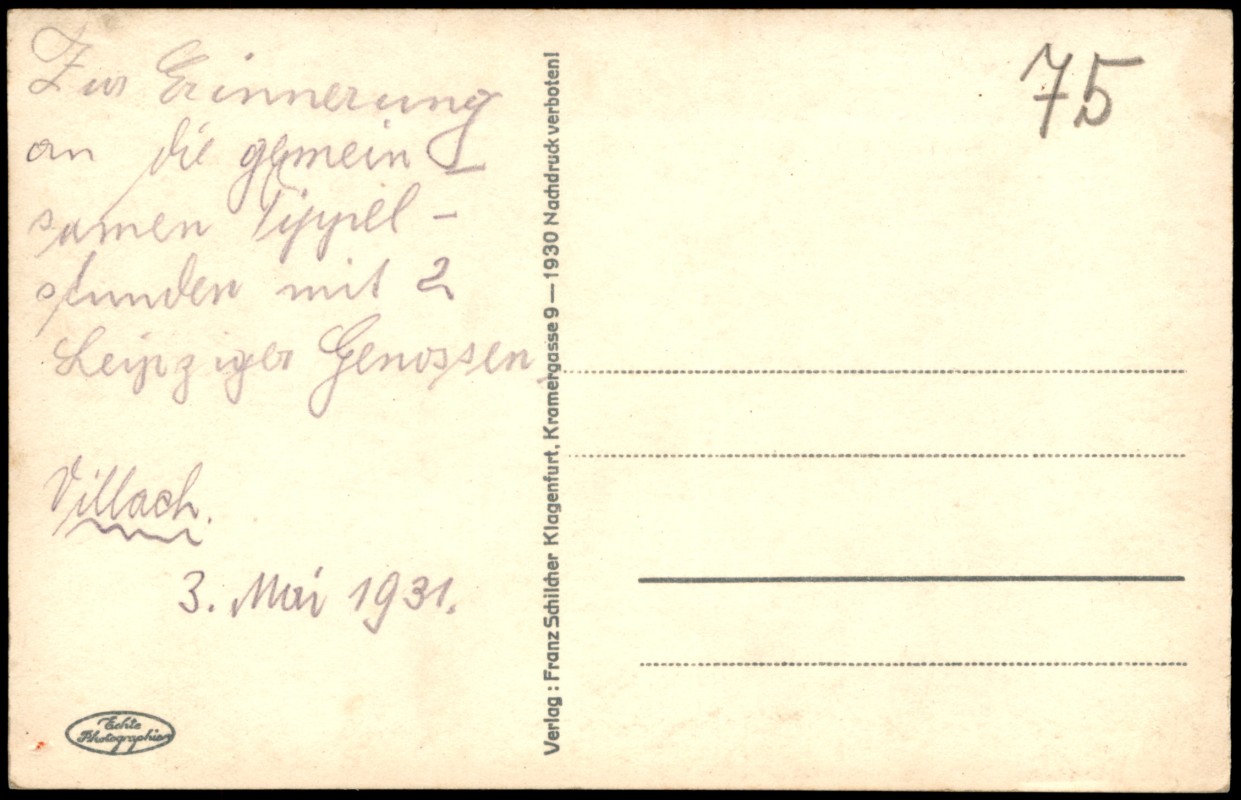 Zur Erinnerung
an die gemein
samen Tippel-
stunden mit 2
Leipziger Genossen
Villach.
3. Mai 1931.
Echte
Photographie
Verlag: Franz Schilcher Klagenfurt, Kramergasse 9 — 1930 Nachdruck verboten!
75